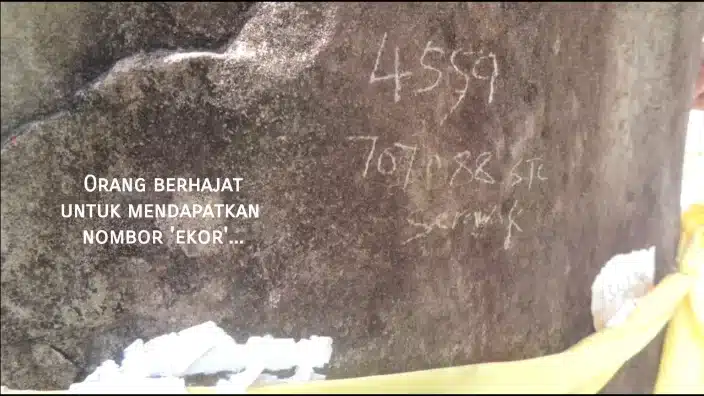 Orang berhajat
untuk mendapatkan
nombor 'ekor'...
4559
707 88 STC